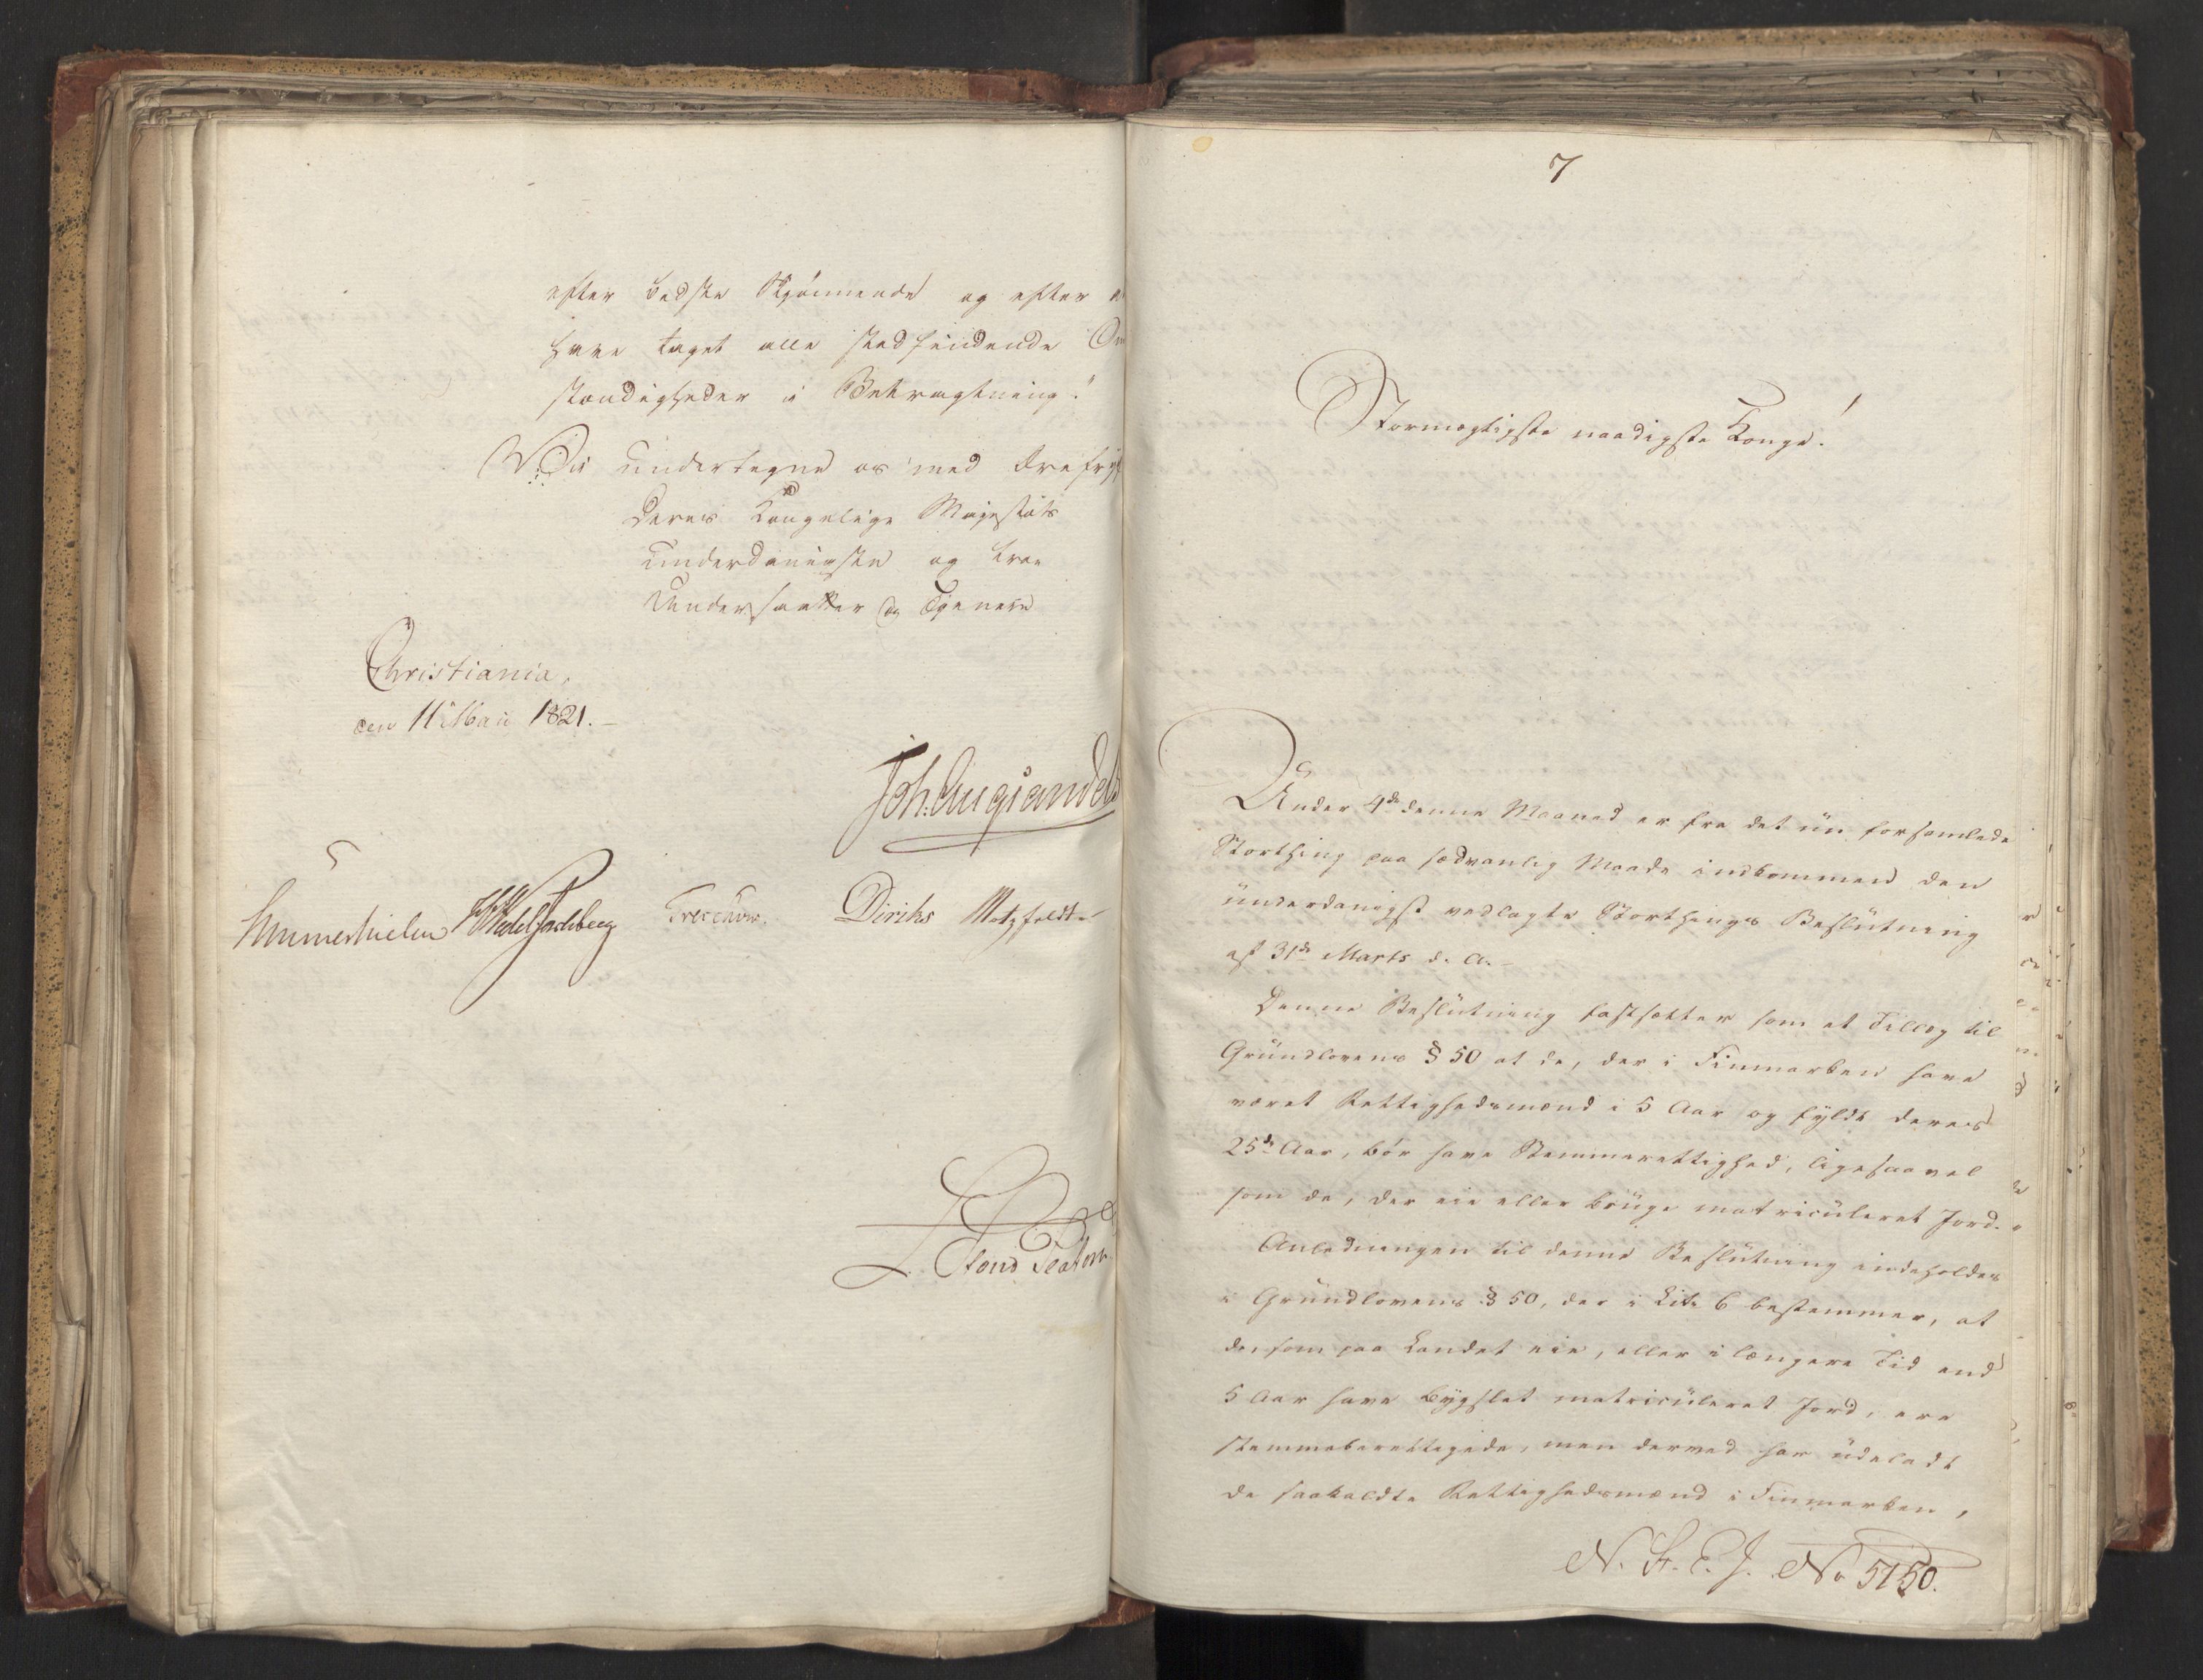 efter bedste Skjønnende og efter a
have taget alle stedfindende Om
stændigheder i Betragtning."
Vi undertegne os med Ærefrygt
Deres Kongelige Majestæts
underdanigste og troe
Undersaatter og Tjenere
Christiania,
den 11 Mai 1821.
Joh. Aug. Sandels
Sommerhielm Wedel Jarlsberg Treschow. Diriks Motzfeldt.
7
Stormægtigste naadigste Konge!
Under 4de denne Maaned er fra det nu forsamlede
Storthing paa sædvanlig Maade indkommen den
underdanigst vedlagte Storthings Beslutning
af 31te Marts d. A.
Denne Beslutning fastsætter som et Tillæg til
Grundlovens § 50 at de, der i Finmarken have
været Rettighedsmænd i 5 Aar og fyldt deres
25de Aar, bør have Stemmerettighed, ligesaavel
som de, der eie eller bruge matriculeret Jord.
Anledningen til denne Beslutning indeholdes
i Grundlovens § 50, der i Litr b bestemmer, at
de, som paa Landet eie, eller i længere Tid end
5 Aar have bygslet matriculeret Jord, ere
stemmeberettigede, men derved har udeladt
de saakaldte Rettighedsmænd i Finmarken,
No 5150.